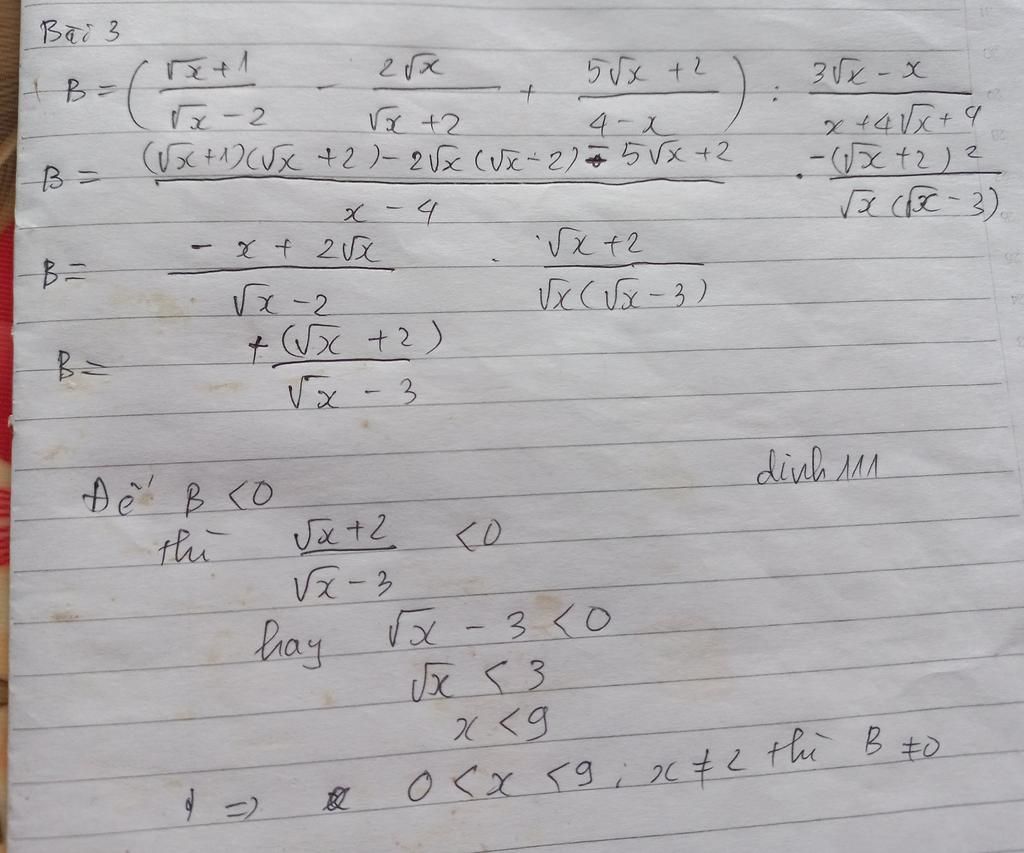 Bài 3
B = ( (√x + 1)/(√x - 2) - 2√x/(√x + 2) + (5√x + 2)/(4 - x) ) : (3√x - x)/(x + 4√x + 4)
B = ((√x + 1)(√x + 2) - 2√x(√x - 2) - 5√x + 2)/(x - 4) . (-(√x + 2)²)/(√x(√x - 3))
B = (- x + 2√x)/(√x - 2) . (√x + 2)/(√x(√x - 3))
B = (+(√x + 2))/(√x - 3)
dinh 111
Để B < 0
thì (√x + 2)/(√x - 3) < 0
hay √x - 3 < 0
√x < 3
x < 9
⇒ 0 < x < 9 ; x ≠ 2 thì B ≠ 0